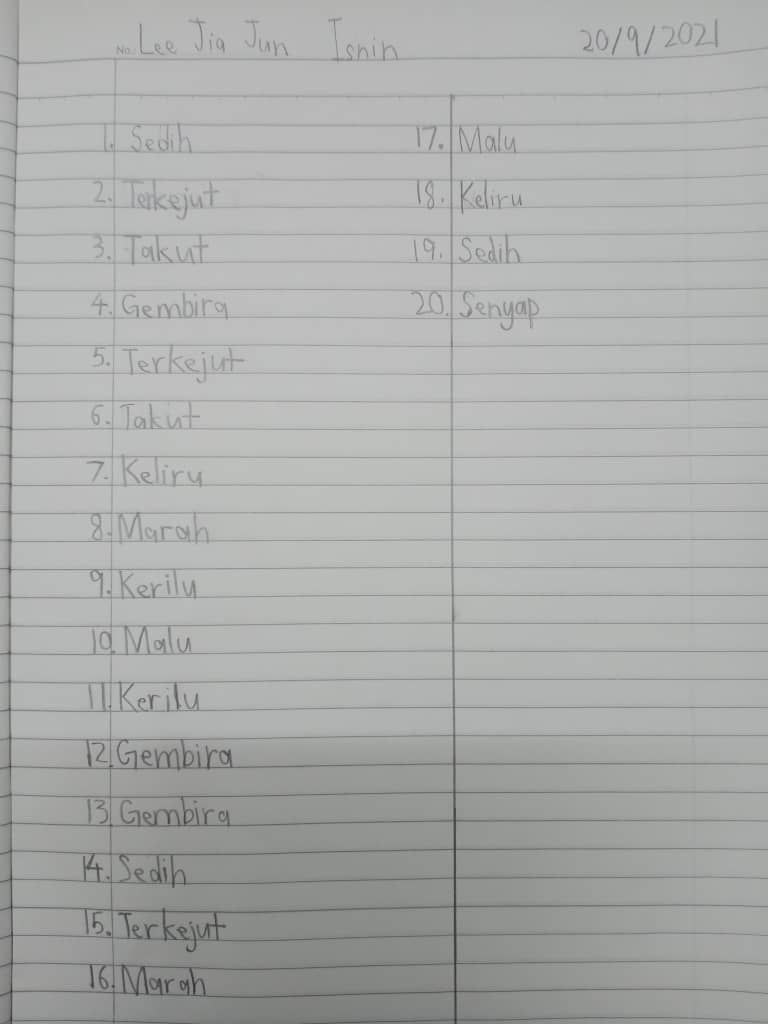 No. Lee Jia Jun Isnin 20/9/2021
1. Sedih
2. Terkejut
3. Takut
4. Gembira
5. Terkejut
6. Takut
7. Keliru
8. Marah
9. Kerilu
10. Malu
11. Kerilu
12. Gembira
13. Gembira
14. Sedih
15. Terkejut
16. Marah
17. Malu
18. Keliru
19. Sedih
20. Senyap